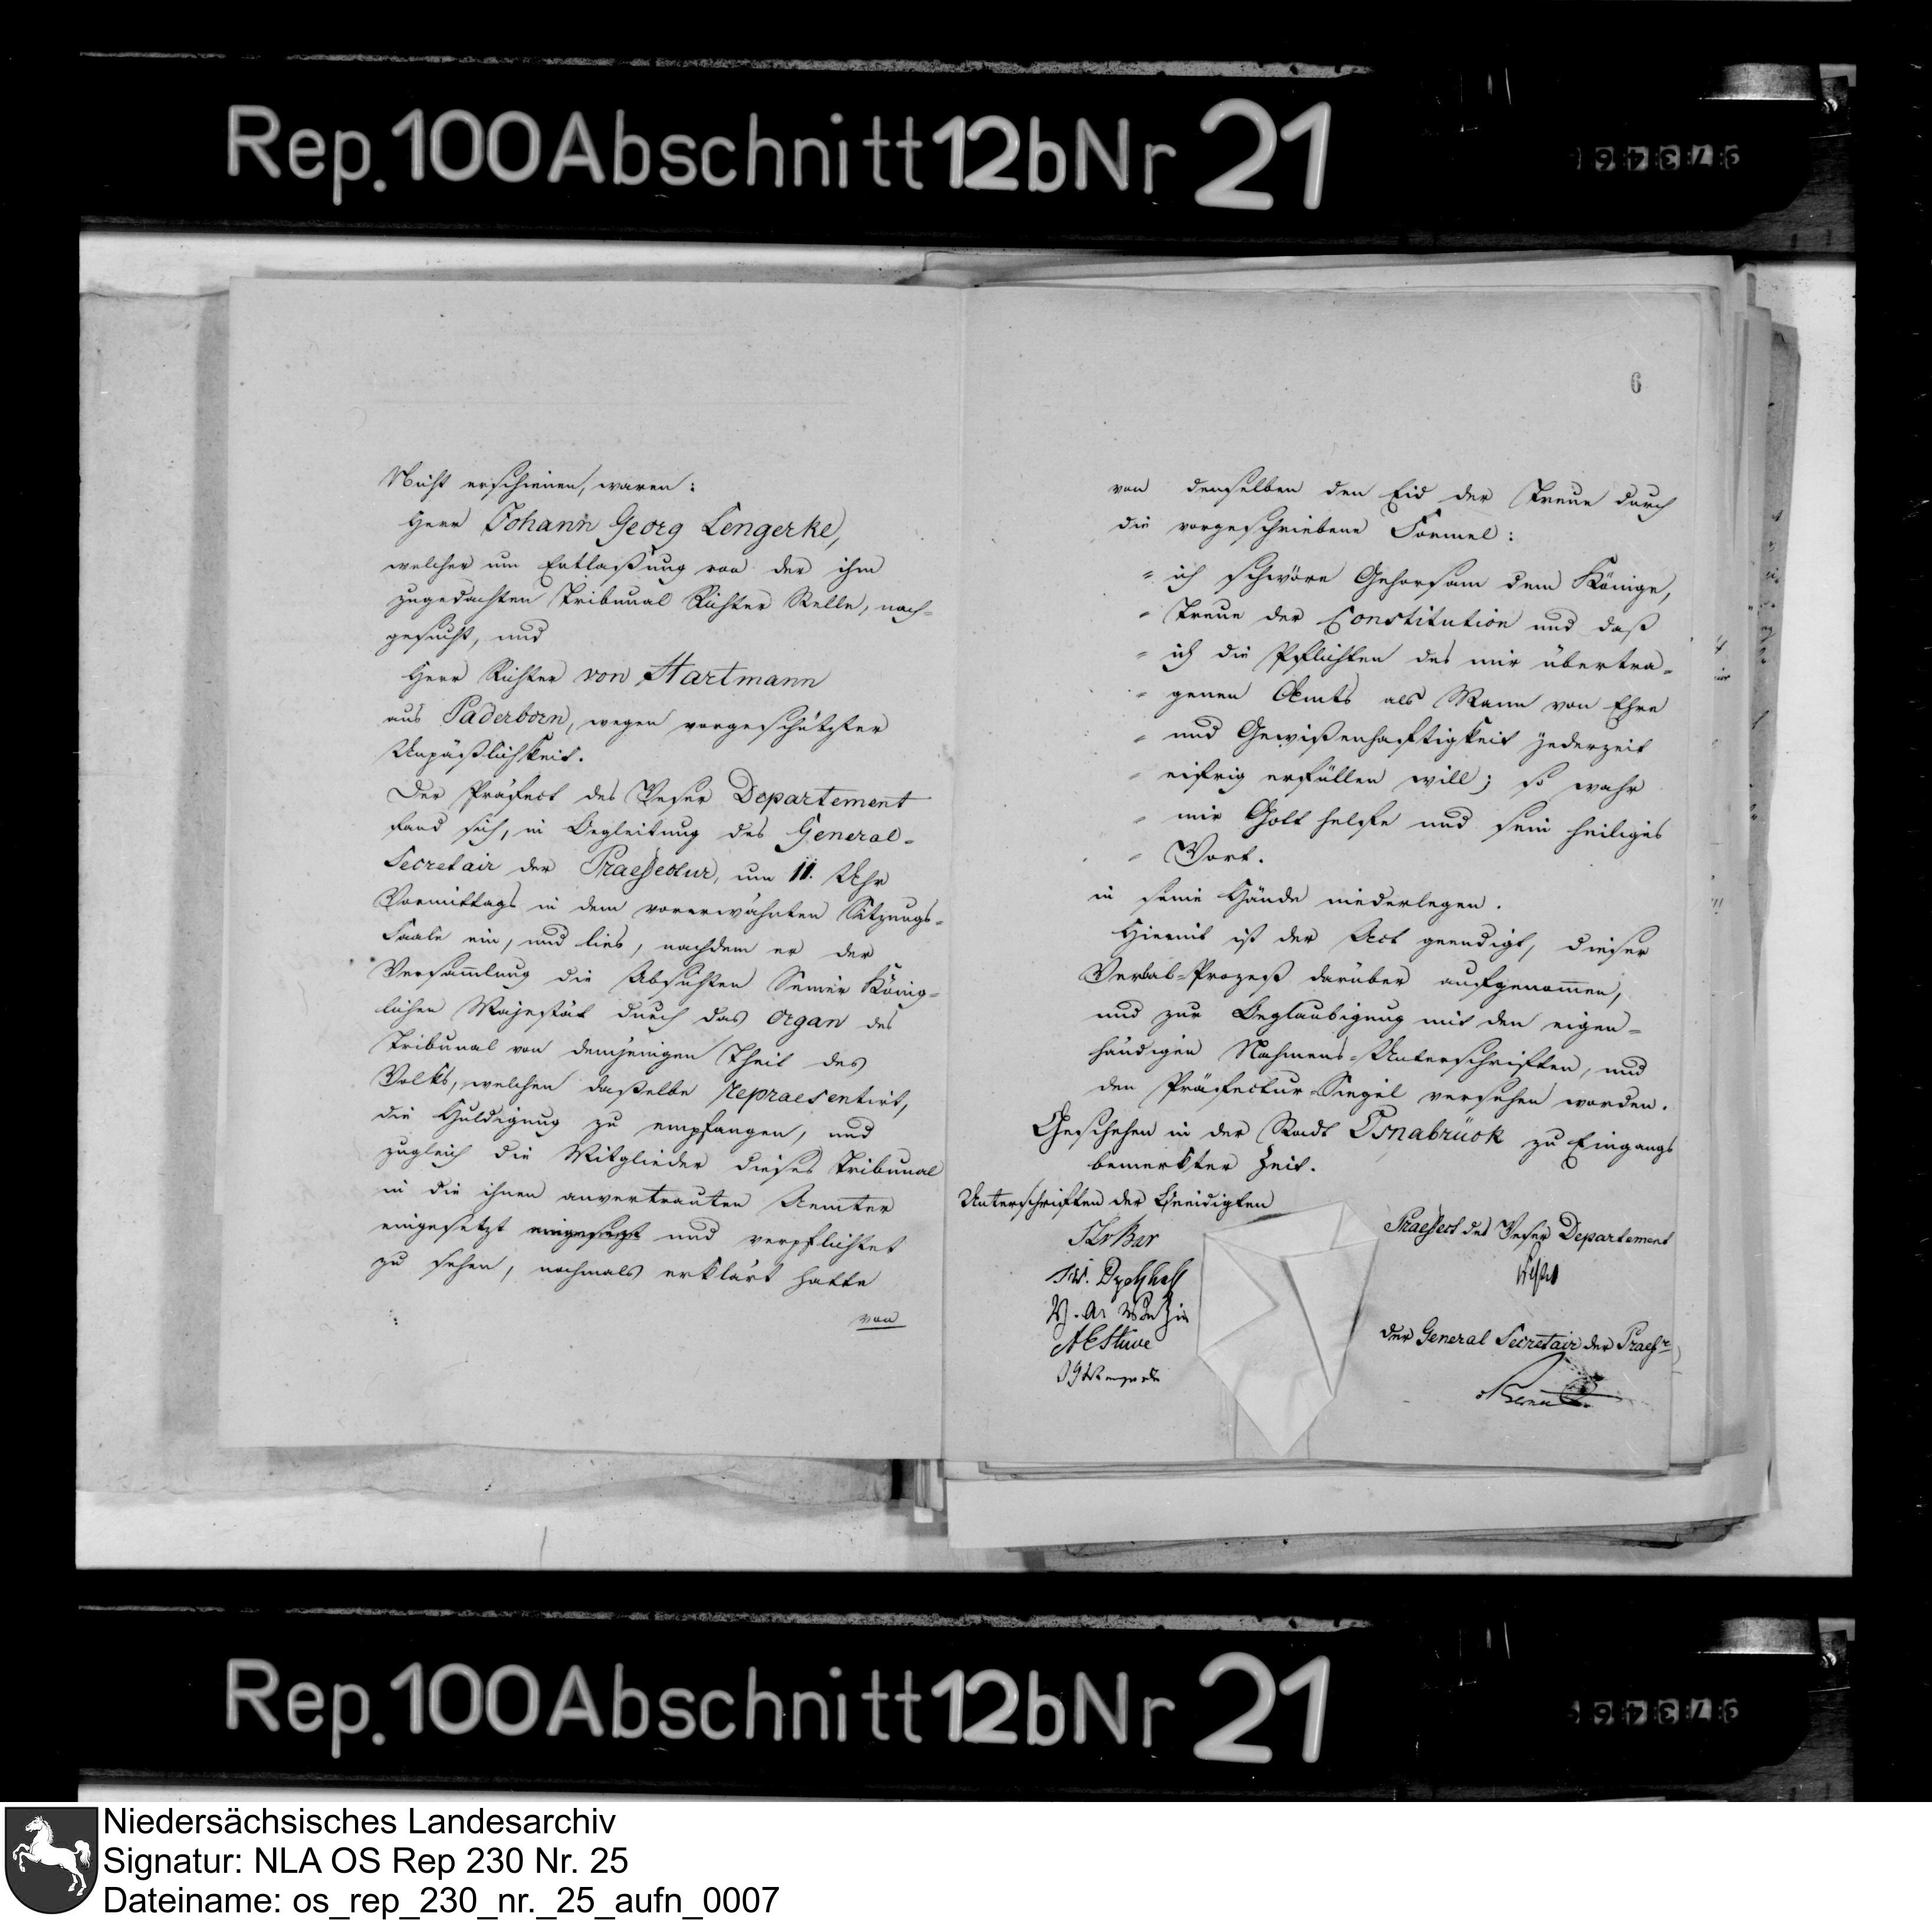 Rep. 100 Abschnitt 12b Nr 21
Nicht erschienen, waren:
Herr Johann Georg Lengerke,
welcher um Entlaßung von der ihm
zugedachten Tribunal Richter Stelle, nach-
gesucht, und
Herr Richter von Hartmann
aus Paderborn, wegen vorgeschützter
Unpäßlichkeit.
Der Präfect des Weser Departement
fand sich, in Begleitung des General-
Secretair der Praefectur, um 11. Uhr
Vormittags in dem vorerwähnten Sitzungs-
Saale ein, und lies, nachdem er der
Versam̅lung die Absichten Seiner König-
lichen Majestät durch das Organ des
Tribunal von demjenigen Theil des
Volks, welchen daßelbe repraesentirt,
die Huldigung zu empfangen, und
zugleich die Mitglieder dieses Tribunal
in die ihnen anvertrauten Aemter
eingesetzt eingesetzt und verpflichtet
zu sehen, nochmals erklärt hatte
von
6
von denselben den Eid der Treue durch
die vorgeschriebene Formel:
" ich schwöre Gehorsam dem Könige,
" Treue der Constitution und daß
" ich die Pflichten des mir übertra-
" genen Amts als Mann von Ehre
" und Gewißenhaftigkeit jederzeit
" eifrig erfüllen will; so wahr
" mir Gott helfe und sein heiliges
" Wort.
in seine Hände niederlegen.
Hiermit ist der Act geendigt, dieser
Verbal-Prozeß darüber aufgenom̅en,
und zur Beglaubigung mit den eigen-
händigen Nahmens-Unterschriften, und
den Präfectur-Siegel versehen worden.
Geschehen in der Stadt Osnabrück zu Eingangs
bemerkter Zeit.
Unterschriften der Beeidigten
Bar
Dyckhoff
Stüve
Praefect des Weser Departement
der General Secretair der Praefr
Rep. 100 Abschnitt 12b Nr 21
Niedersächsisches Landesarchiv
Signatur: NLA OS Rep 230 Nr. 25
Dateiname: os_rep_230_nr._25_aufn_0007